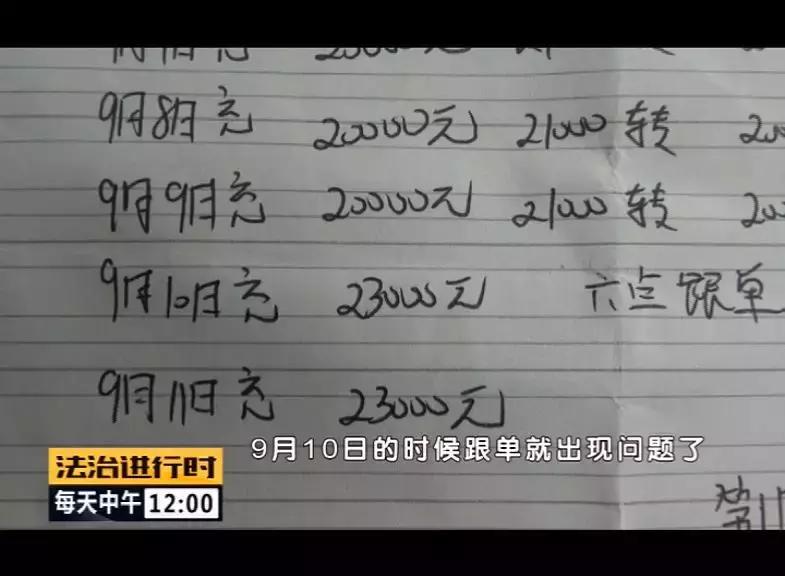 9月8日充 20000元 21000 转 200
9月9日充 20000元 21000 转 200
9月10日充 23000元 六点 跟单
9月11日充 23000元
9月10日的时候跟单就出现问题了
法治进行时
每天中午 12:00